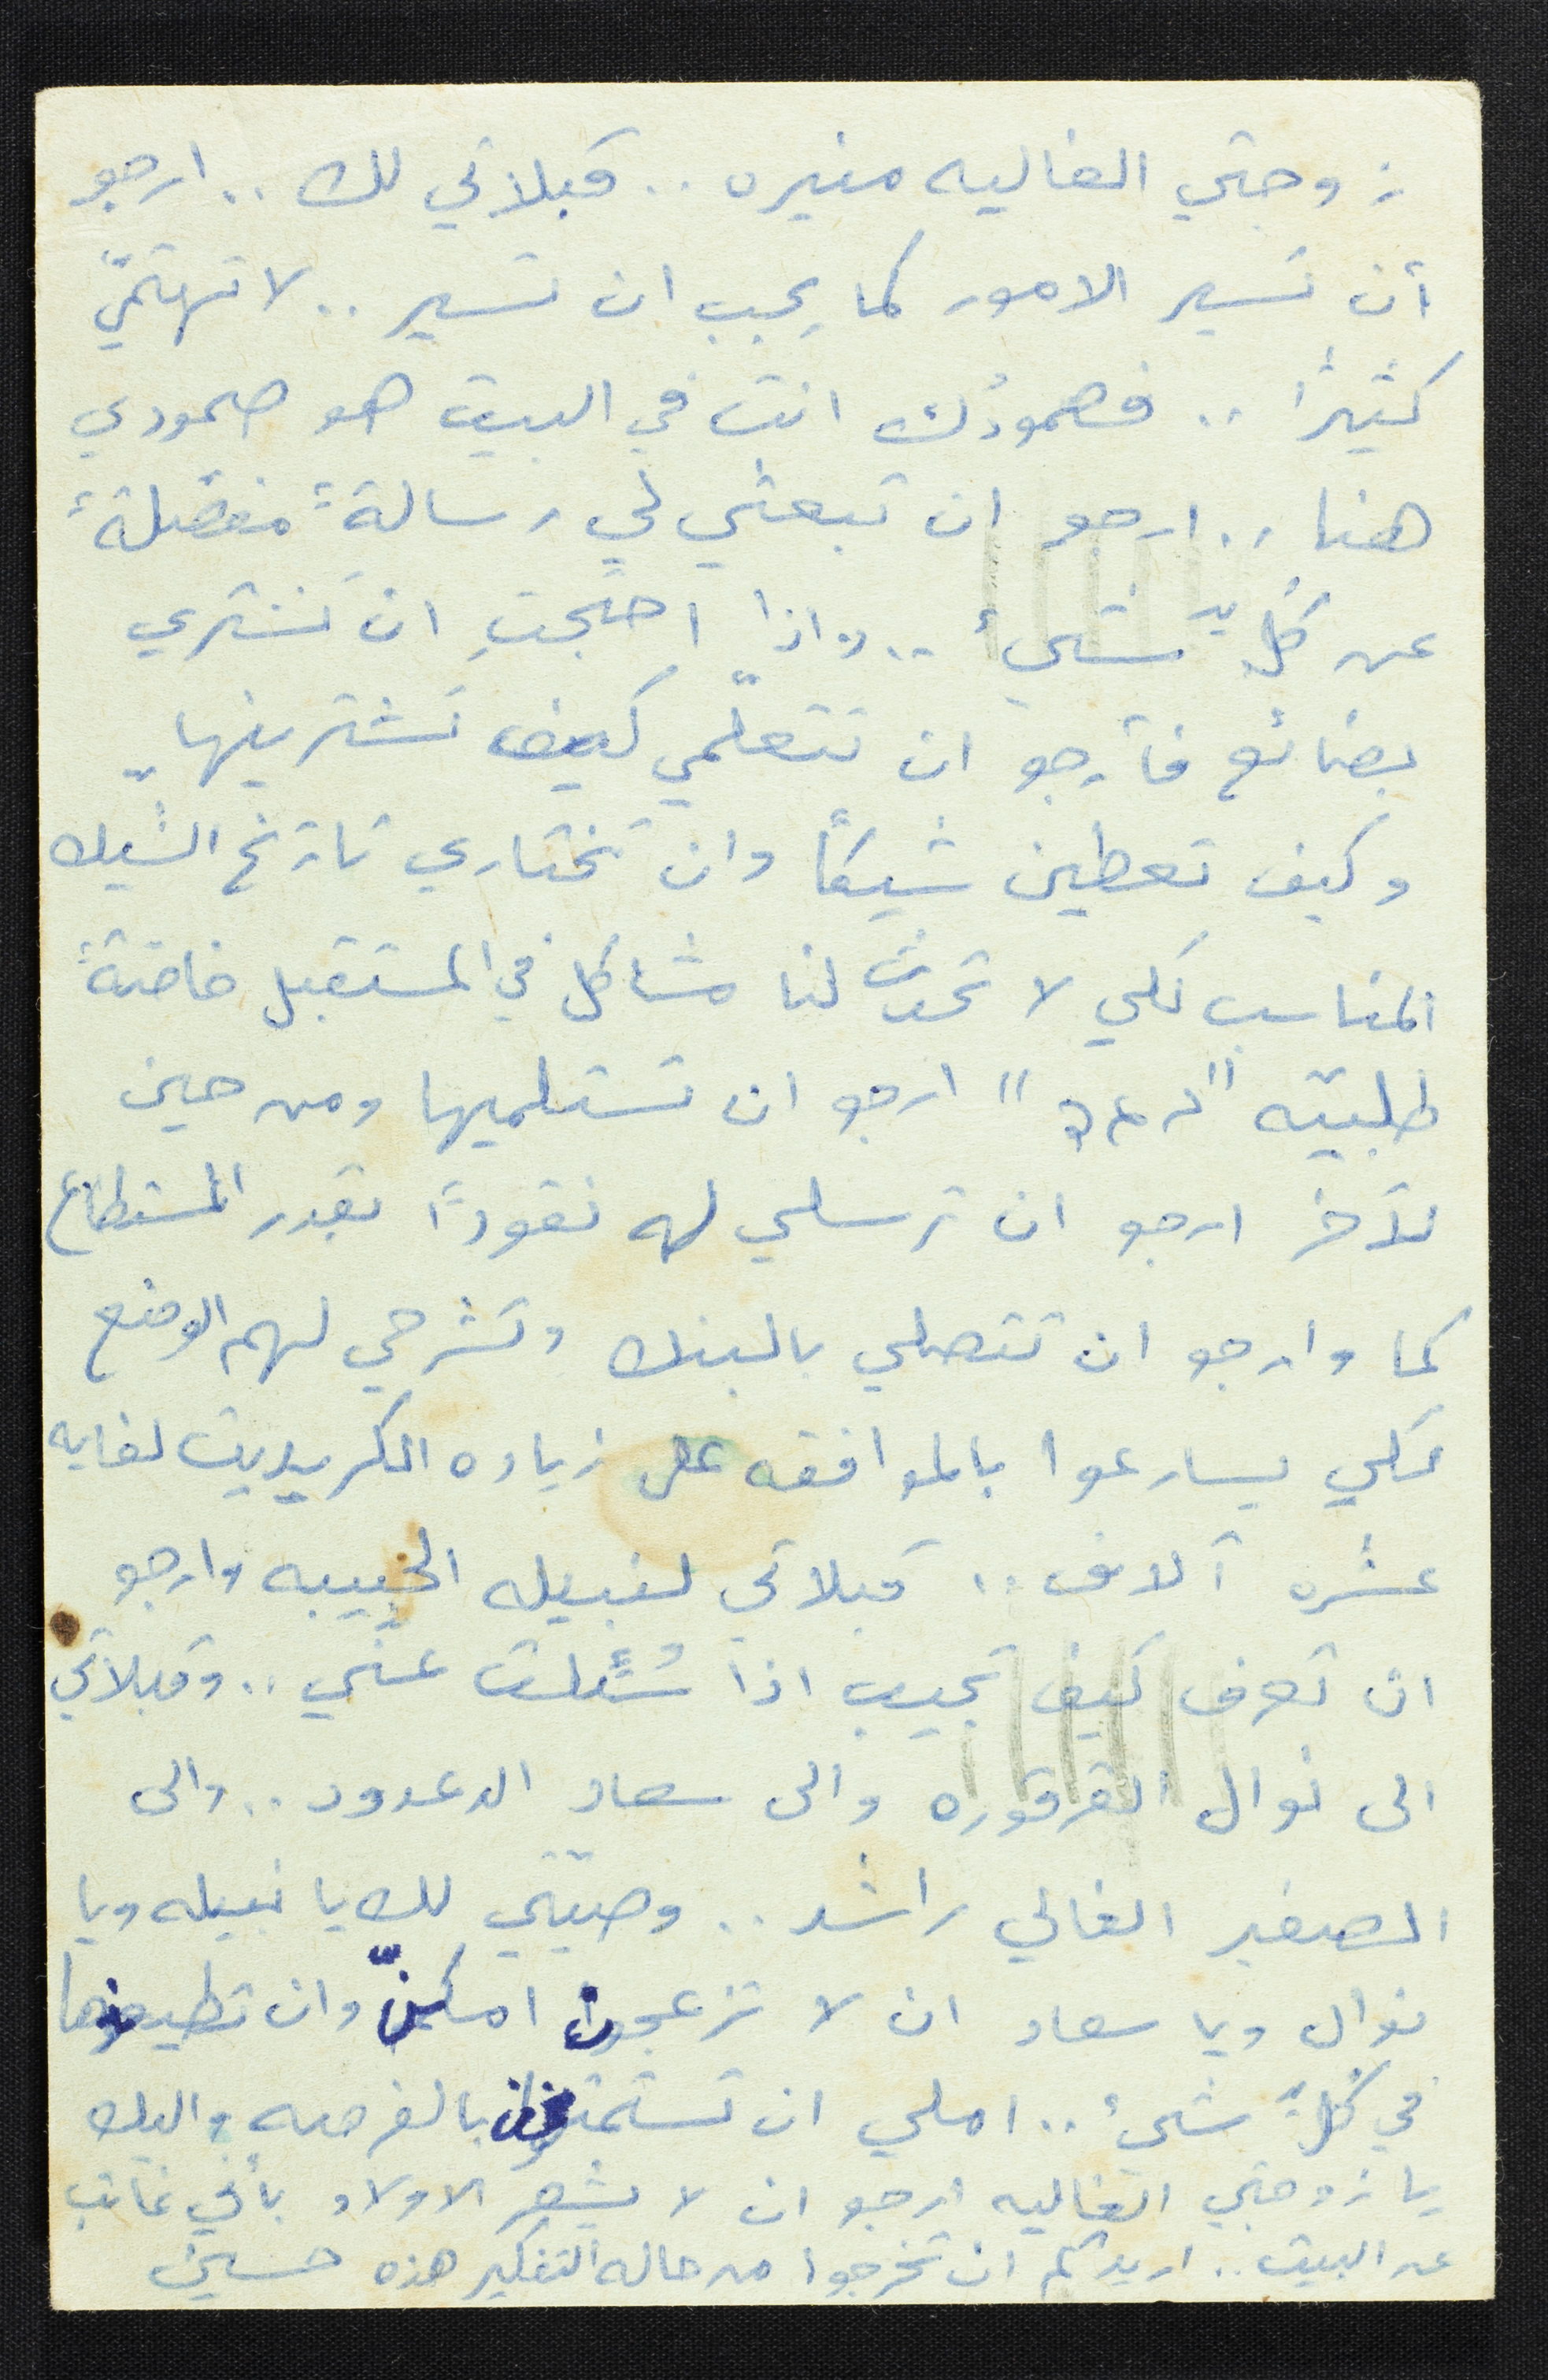 زوجتي الغاليه منيره .. قبلاتي لك .. ارجو
أن تسير الامور كما يجب ان تسير .. لا تهتمّي
كثيرًا .. فصمودُك انت في البيت هو صمودي
هنا .. ارجو ان تبعثي لي رسالةً مفصّلةً
عن كلِّ شيءٍ .. واذا احتجتِ ان تشتري
بضائع فأرجو ان تتعلّمي كيف تشترينها
وكيف تعطين شيكًا وان تختاري تاريخ الشيك
المناسب لكي لا تحدث لنا مشاكل في المستقبل خاصّةً
طلبيّه " " ارجو ان تستلميها ومن حين
لآخر ارجو ان ترسلي له نقودًا بقدر المستطاع
كما وارجو ان تتصلي بالبنك وتشرحي لهم الوضع
لكي يسارعوا بالموافقه على زياده الكريديت لغايه
عشره آلاف .. قبلاتي لنبيله الحبيبه وارجو
ان تعرف كيف تجيب اذا سُئلت عنّي .. وقبلاتي
الى نوال القرقوره والى سعاد الدعدود .. والى
الصغير الغالي راشد .. وصيّتي لك يا نبيله ويا
نوال ويا سعاد ان لا تزعجن امكنّ وان تطيعنها
في كلِّ شيءٍ .. املي ان تستمتعن بالفرصه واليك
يا زوجتي الغاليه ارجو ان لا يشعر الاولاد بأني غائب
عن البيت .. اريدكم ان تخرجوا من حاله التفكير هذه حسين